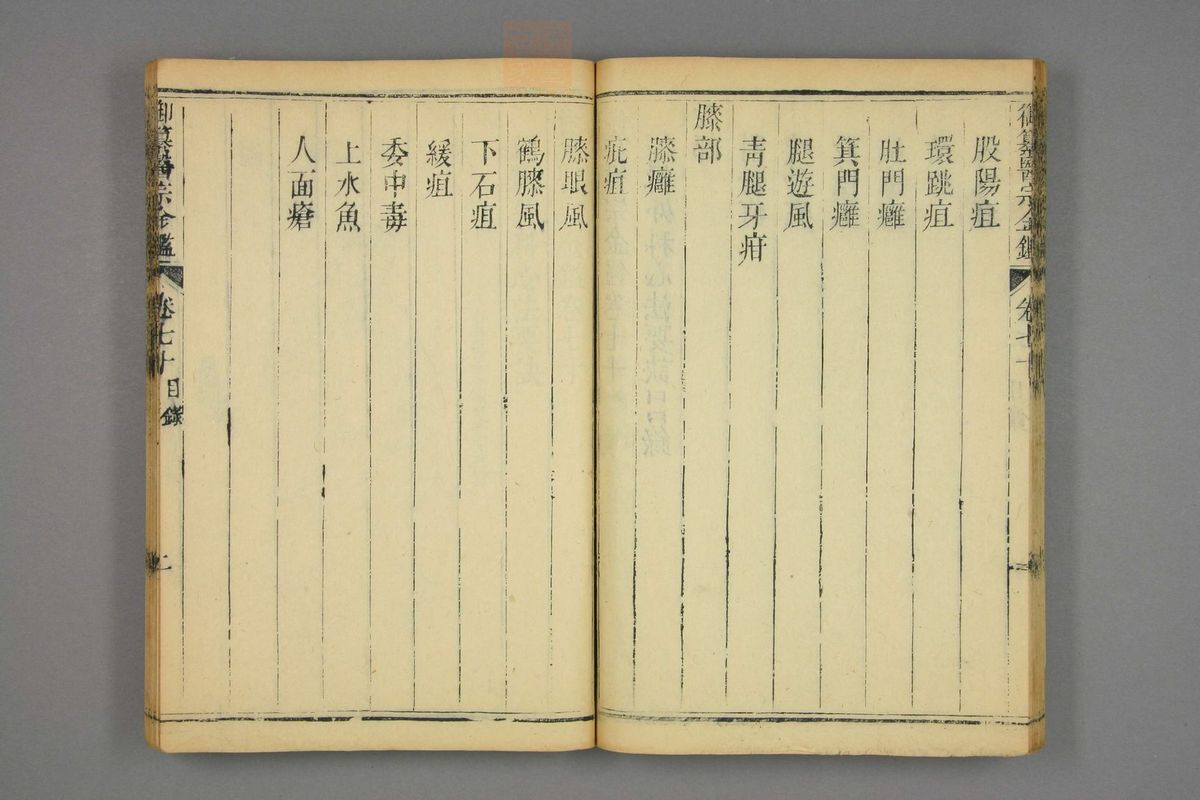 御纂醫宗金鑑 卷七十
股陽疽
環跳疽
肚門癰
箕門癰
腿遊風
青腿牙疳
膝部
膝癰
疵疽
膝眼風
鶴膝風
下石疽
緩疽
委中毒
上水魚
人面瘡
御纂醫宗金鑑 卷七十 目錄